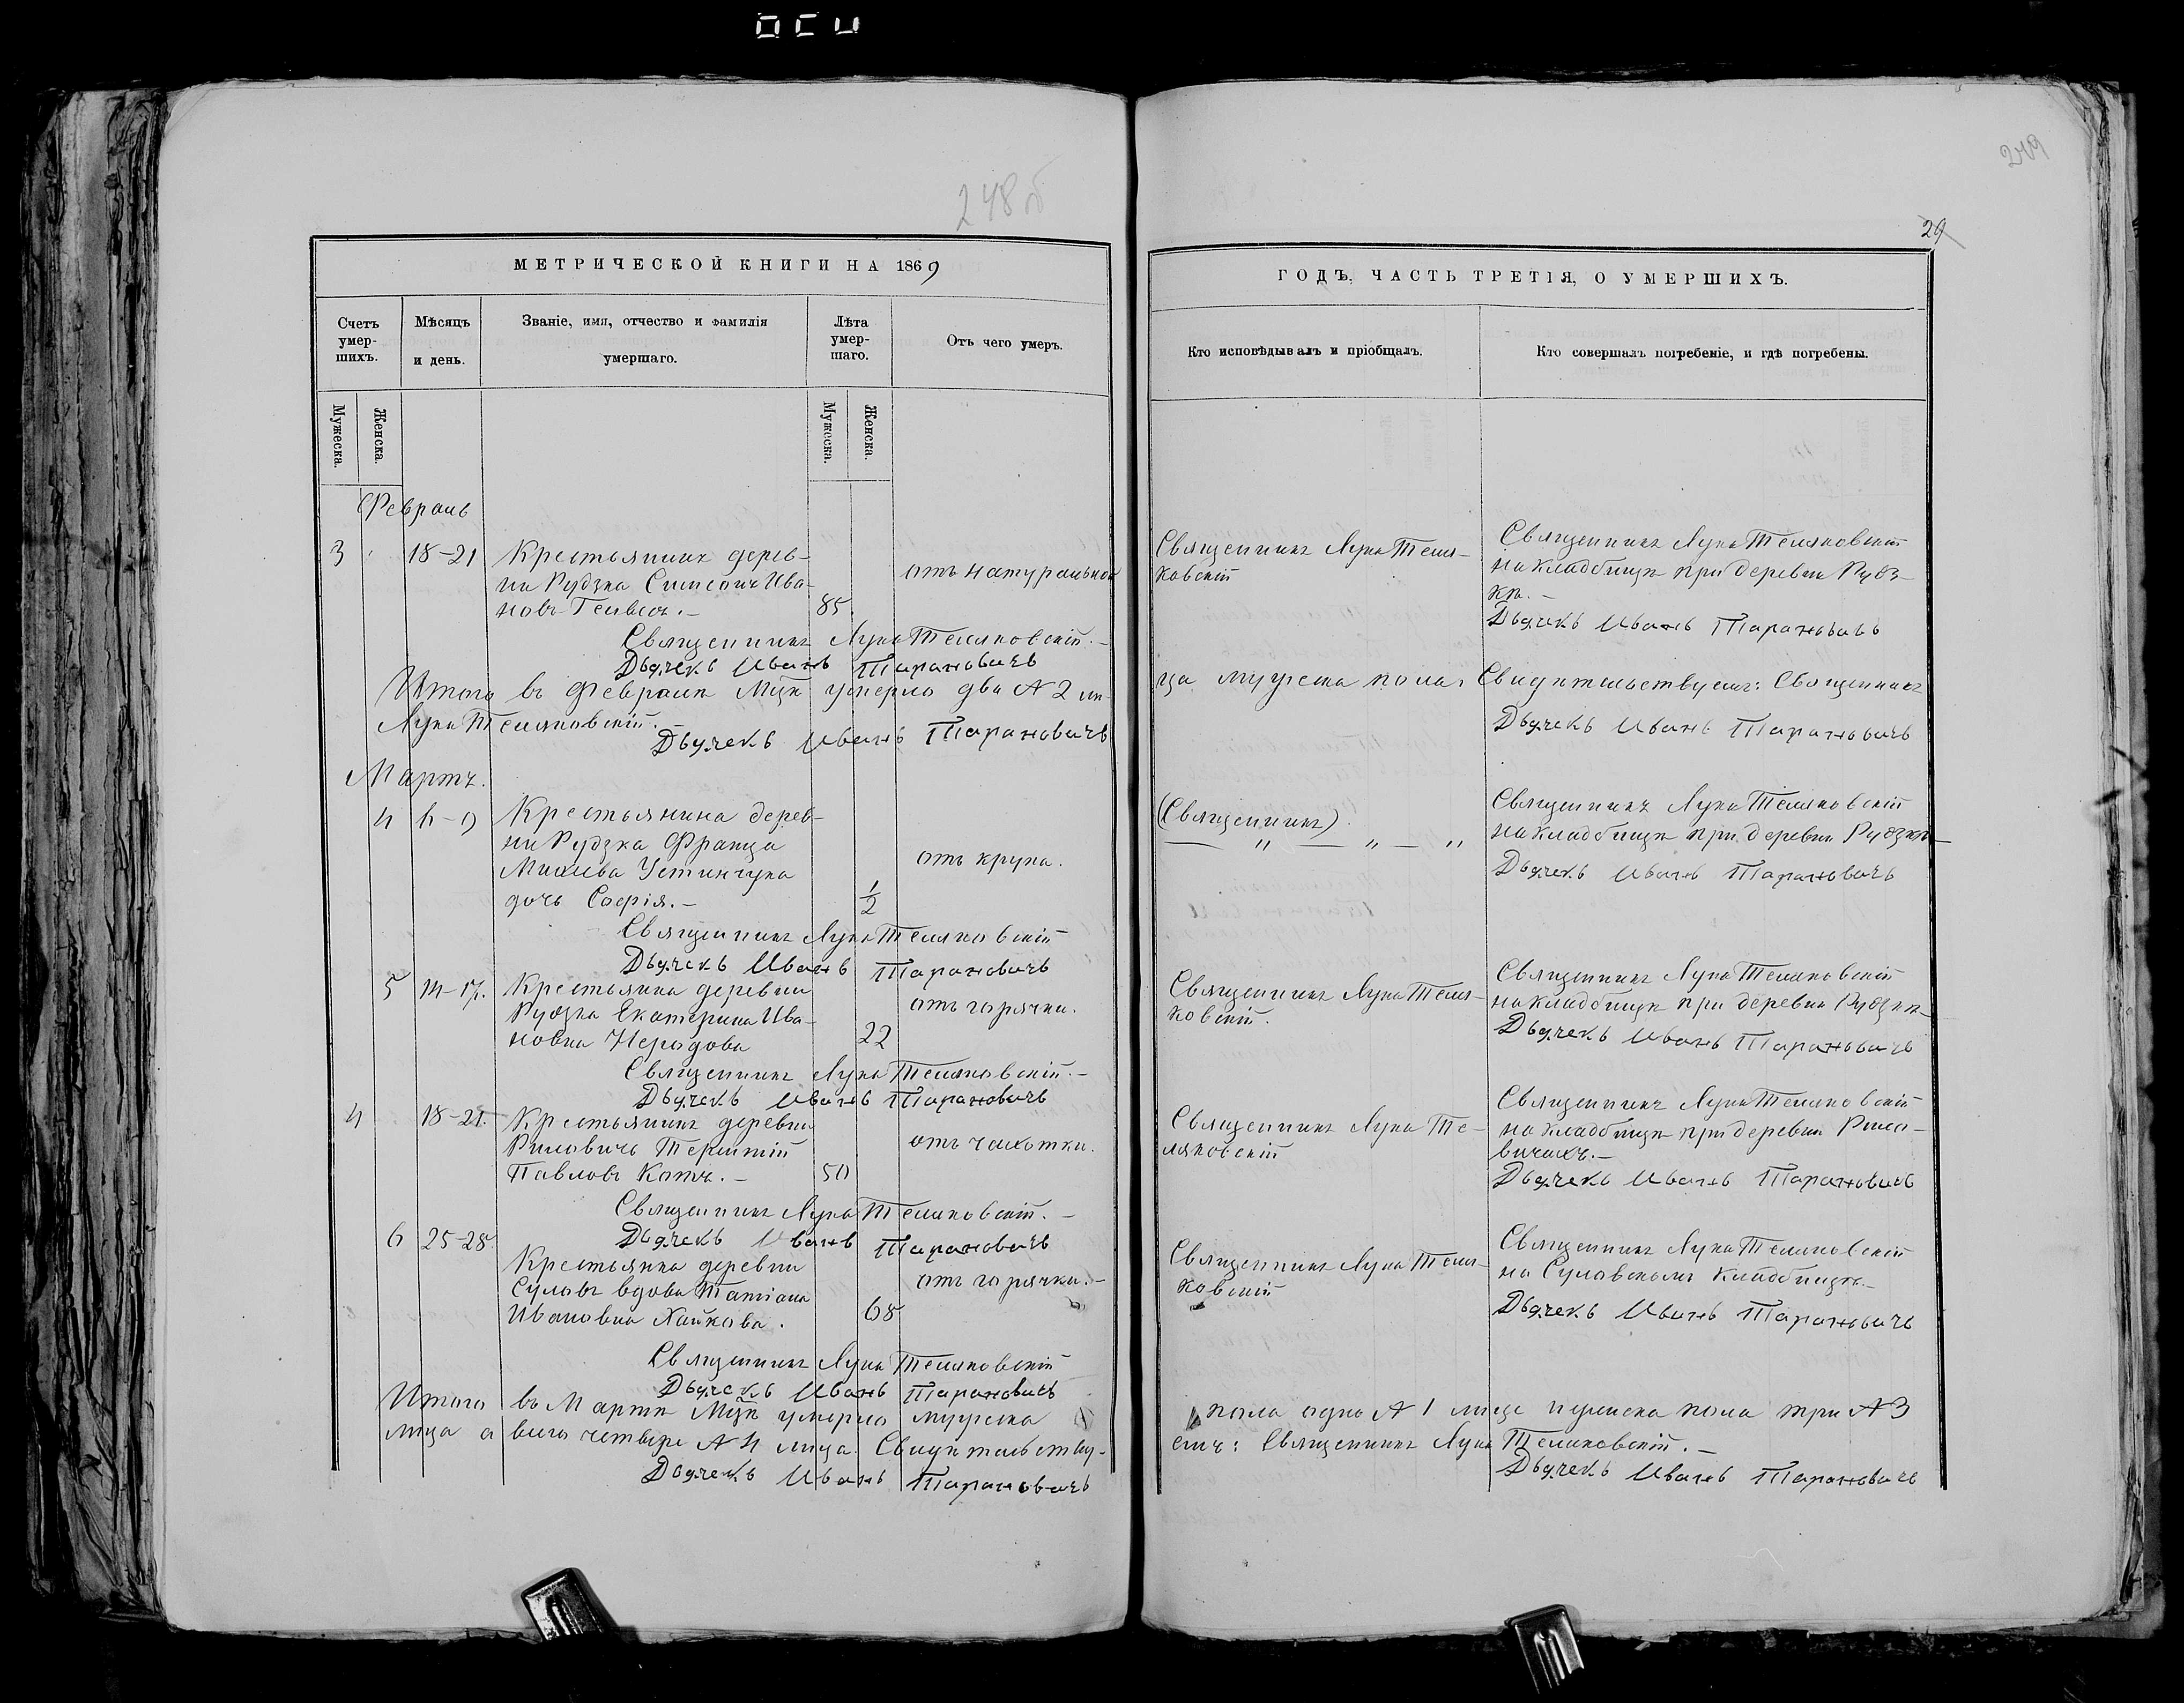 248 об
249
29
МЕТРИЧЕСКОЙ КНИГИ НА 1869
Счетъ умер-шихъ.
Мѣсяцъ и день.
Званіе, имя, отчество и фамилія умершаго.
Лѣта умер-шаго.
Отъ чего умеръ.
Мужеска.
Женска.
Мужеска.
Женска.
Февраль
3 18-21 Крестьянинъ дерев-
ни Рудзка Симеонъ Ива-
новъ 85
отъ натуральной
Священникъ Лука Теляковскій.-
Дьячекъ Иванъ Тарановичъ
Итого въ Февралѣ Мцѣ умерло два № 2 ли-
Лука Теляковскій.
Дьячекъ Иванъ Тарановичъ
Мартъ.
4 6-9 Крестьянина дерев-
ни Рудзка Франца
Устинчука
отъ крупа.
дочь Софія.- 1/2
Священникъ Лука Теляковскій
Дьячекъ Иванъ Тарановичъ
5 14-17. Крестьянка деревни
Рудзка Екатерина Ива-
отъ горячки.
новна 22
Священникъ Лука Теляковскій.-
Дьячекъ Иванъ Тарановичъ
4 18-21. Крестьянинъ деревни
Риловичъ Терентій
отъ чахотки.
Павловъ Котъ.- 50
Священникъ Лука Теляковскій.-
Дьячекъ Иванъ Тарановичъ
6 25-28. Крестьянка деревни
Суловъ вдова Татіана
отъ горячки.-
Ивановна Хайкова. 68
Священникъ Лука Теляковскій
Дьячекъ Иванъ Тарановичъ
Итого въ Мартѣ Мцѣ умерло мужеска
лица а всего четыре № 4 лица. Свидѣтельству-
Дьячекъ Иванъ Тарановичъ
ГОДЪ, ЧАСТЬ ТРЕТІЯ, О УМЕРШИХЪ.
Кто исповѣдывалъ и пріобщалъ.
Кто совершалъ погребеніе, и гдѣ погребены.
Священникъ Лука Теля-
ковскій
Священникъ Лука Теляковскій
на кладбищѣ при деревнѣ Рудз-
кѣ.-
Дьячекъ Иванъ Тарановичъ
ца мужеска пола. Свидѣтельствуемъ: Священникъ
Дьячекъ Иванъ Тарановичъ
(Священникъ)
— " — " — "
Священникъ Лука Теляковскій
на кладбищѣ при деревнѣ Рудзкѣ-
Дьячекъ Иванъ Тарановичъ
Священникъ Лука Теля-
ковскій.
Священникъ Лука Теляковскій
на кладбищѣ при деревнѣ Рудзкѣ-
Дьячекъ Иванъ Тарановичъ
Священникъ Лука Те-
ляковскій
Священникъ Лука Теляковскій
на кладбищѣ при деревнѣ Рило-
вичахъ.-
Дьячекъ Иванъ Тарановичъ
Священникъ Лука Теля-
ковскій
Священникъ Лука Теляковскій
на Суловскомъ кладбищѣ.-
Дьячекъ Иванъ Тарановичъ
пола одно № 1 лице и женска пола три № 3
емъ: Священникъ Лука Теляковскій.-
Дьячекъ Иванъ Тарановичъ